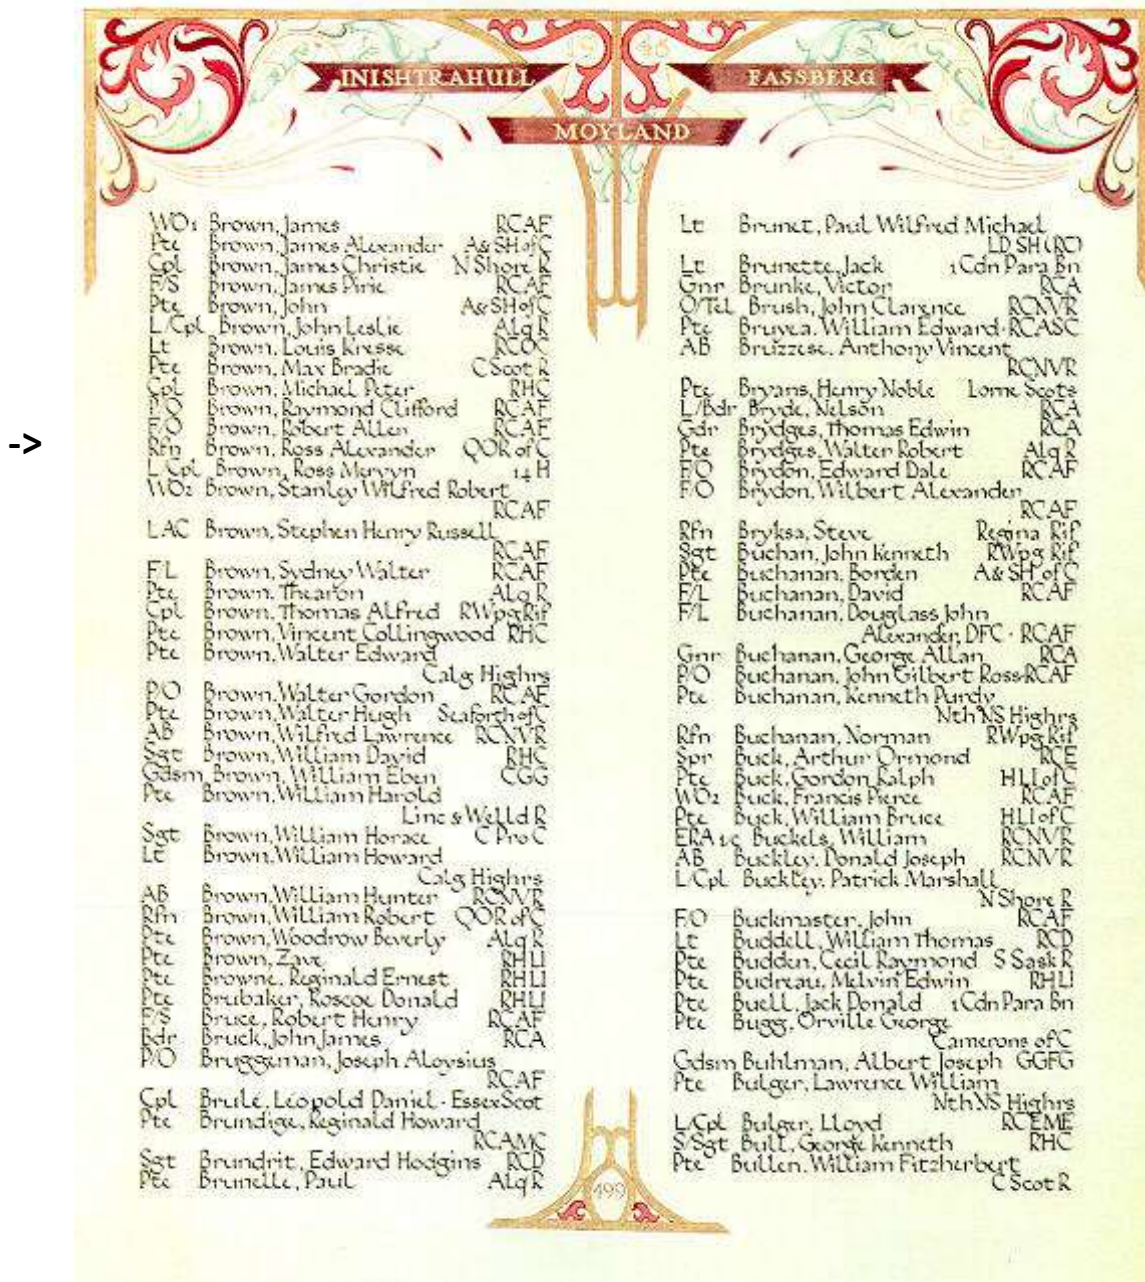 19 45
INISHTRAHULL
FASSBERG
MOYLAND
->
WO1 Brown, James RCAF
Pte Brown, James Alexander A&SH of C
Cpl Brown, James Christie N Shore R
F/S Brown, James Pirie RCAF
Pte Brown, John A&SH of C
L/Cpl Brown, John Leslie Alq R
Lt Brown, Louis Kresse RCOC
Pte Brown, Max Bradie C Scot R
Cpl Brown, Michael Peter RHC
P/O Brown, Raymond Clifford RCAF
F/O Brown, Robert Allen RCAF
Rfn Brown, Ross Alexander QOR of C
L/Cpl Brown, Ross Mervyn 14 H
WO2 Brown, Stanley Wilfred Robert
RCAF
LAC Brown, Stephen Henry Russell
RCAF
F/L Brown, Sydney Walter RCAF
Pte Brown, Thearon Alq R
Cpl Brown, Thomas Alfred RWpg Rif
Pte Brown, Vincent Collingwood RHC
Pte Brown, Walter Edward
Calg Highrs
P/O Brown, Walter Gordon RCAF
Pte Brown, Walter Hugh Seaforth of C
AB Brown, Wilfred Lawrence RCNVR
Sgt Brown, William David RHC
Gdsm Brown, William Eben CGG
Pte Brown, William Harold
Linc & Welld R
Sgt Brown, William Horace C Pro C
Lt Brown, William Howard
Calg Highrs
AB Brown, William Hunter RCNVR
Rfn Brown, William Robert QOR of C
Pte Brown, Woodrow Beverly Alq R
Pte Brown, Zave RHLI
Pte Browne, Reginald Ernest RHLI
Pte Brubaker, Roscoe Donald RHLI
F/S Bruce, Robert Henry RCAF
Bdr Bruck, John James RCA
P/O Bruggeman, Joseph Aloysius
RCAF
Cpl Brule, Leopold Daniel · Essex Scot
Pte Brundige, Reginald Howard
RCAMC
Sgt Brundrit, Edward Hodgins RCD
Pte Brunelle, Paul Alq R
Lt Brunet, Paul Wilfred Michael
LD SH (RC)
Lt Brunette, Jack 1 Cdn Para Bn
Gnr Brunke, Victor RCA
O/Tel Brush, John Clarence RCNVR
Pte Bruyea, William Edward · RCASC
AB Bruzzese, Anthony Vincent
RCNVR
Pte Bryans, Henry Noble Lorne Scots
L/Bdr Bryde, Nelson RCA
Gdr Brydges, Thomas Edwin RCA
Pte Brydges, Walter Robert Alq R
F/O Brydon, Edward Dale RCAF
F/O Brydon, Wilbert Alexander
RCAF
Rfn Bryksa, Steve Regina Rif
Sgt Buchan, John Kenneth RWpg Rif
Pte Buchanan, Borden A&SH of C
F/L Buchanan, David RCAF
F/L Buchanan, Douglass John
Alexander, DFC · RCAF
Gnr Buchanan, George Allan RCA
P/O Buchanan, John Gilbert Ross · RCAF
Pte Buchanan, Kenneth Purdy
Nth NS Highrs
Rfn Buchanan, Norman RWpg Rif
Spr Buck, Arthur Ormond RCE
Pte Buck, Gordon Ralph HLI of C
WO2 Buck, Francis Pierce RCAF
Pte Buck, William Bruce HLI of C
ERA 4c Buckels, William RCNVR
AB Buckley, Donald Joseph RCNVR
L/Cpl Buckley, Patrick Marshall
N Shore R
F/O Buckmaster, John RCAF
Lt Buddell, William Thomas RCD
Pte Budden, Cecil Raymond S Sask R
Pte Budreau, Melvin Edwin RHLI
Pte Buell, Jack Donald 1 Cdn Para Bn
Pte Bugg, Orville George
Camerons of C
Gdsm Buhlman, Albert Joseph GGFG
Pte Bulger, Lawrence William
Nth NS Highrs
L/Cpl Bulger, Lloyd RCEME
S/Sgt Bull, George Kenneth RHC
Pte Bullen, William Fitzherbert
C Scot R
499